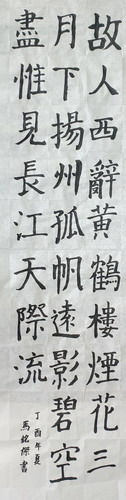 故人西辭黃鶴樓煙花三
月下揚州孤帆遠影碧空
盡惟見長江天際流
丁酉年夏
馬銘傑書